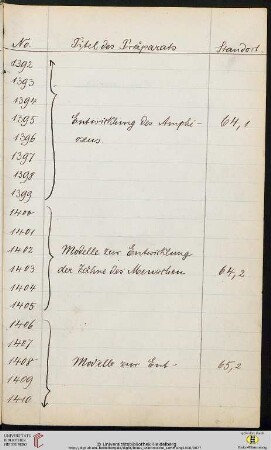 No. Titel des Präparats Standort.
1392
1393
1394
1395 Entwicklung des Amphi- 64,1
1396 oxus.
1397
1398
1399
1400
1401
1402 Modelle zur Entwicklung
1403 der Zähne des Menschen 64,2
1404
1405
1406
1407
1408 Modelle zur Ent- 65,2
1409
1410
UNIVERSITÄTS-
BIBLIOTHEK
HEIDELBERG
© Universitätsbibliothek Heidelberg